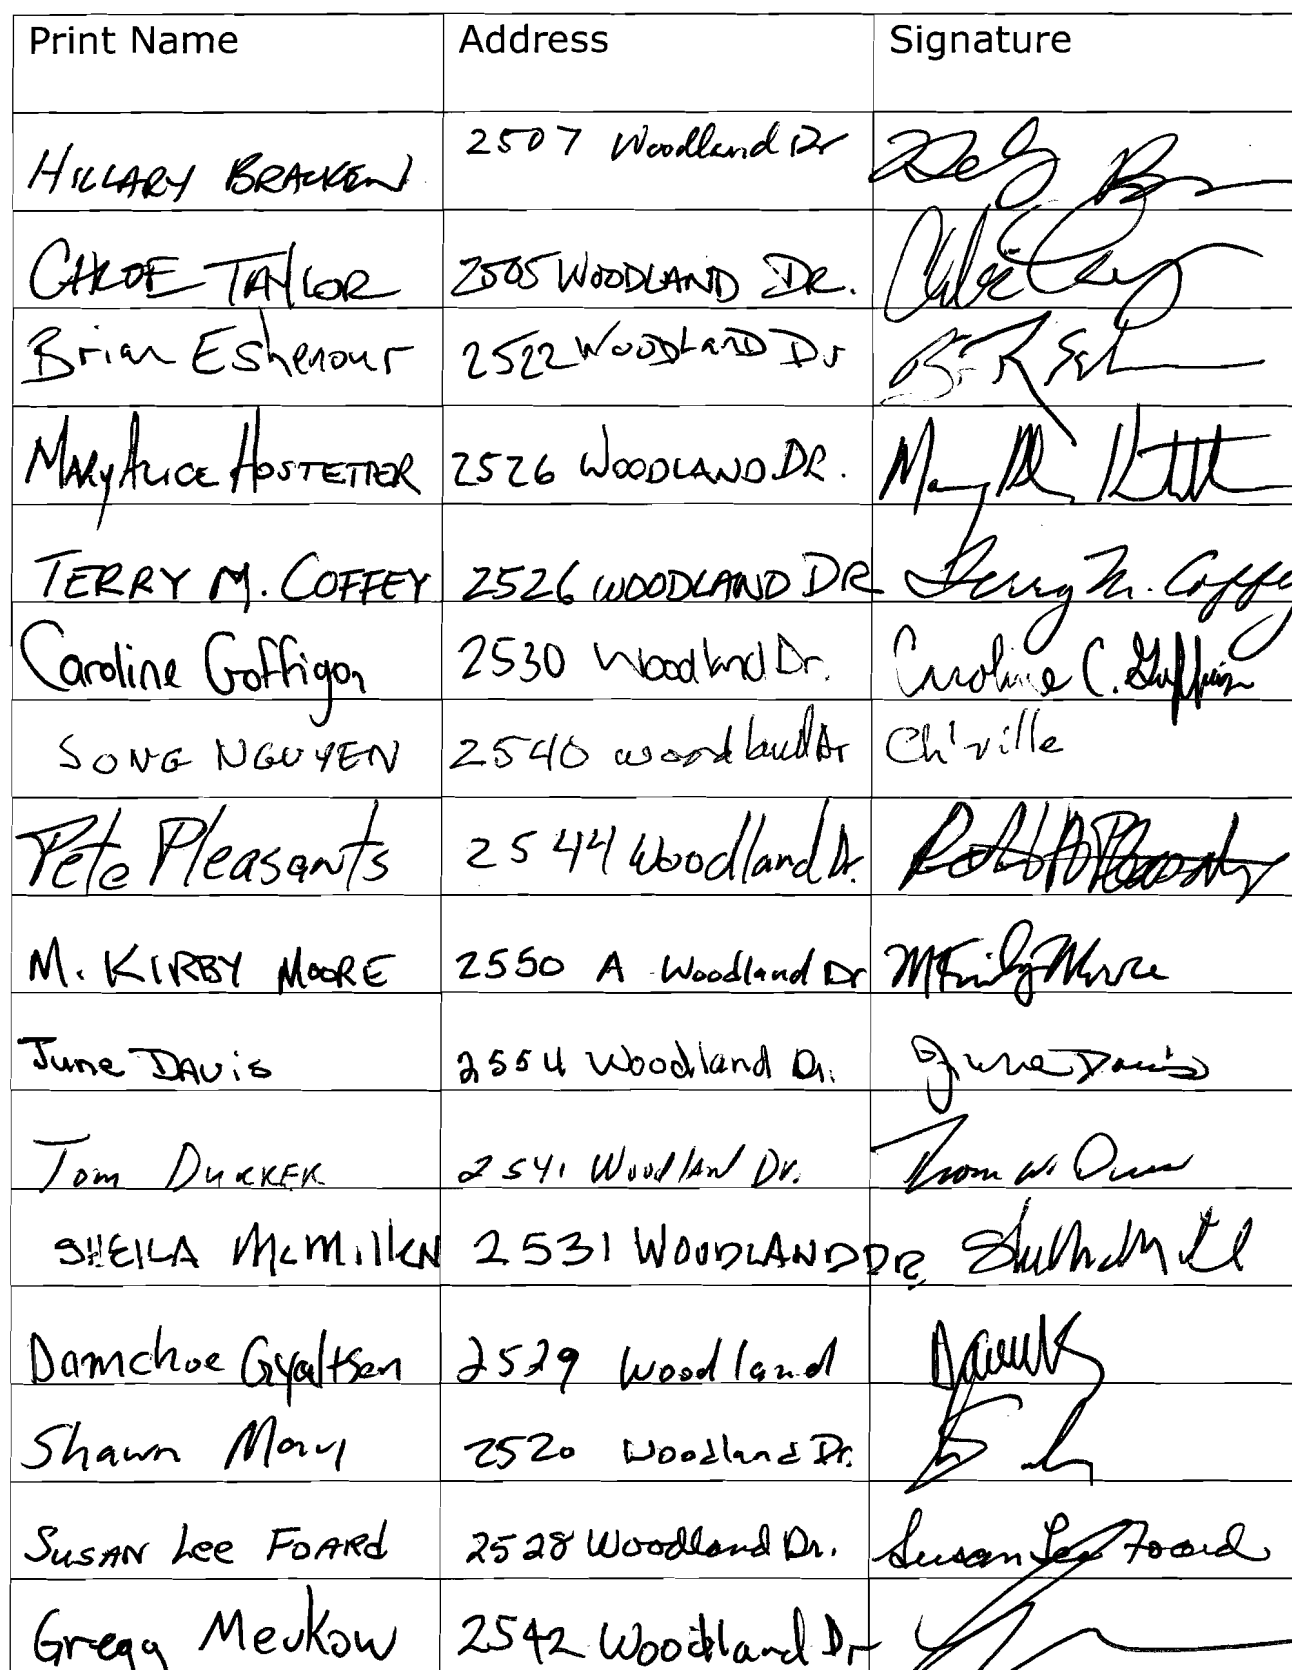 Print Name Address Signature
HILLARY BRACKEN 2507 Woodland Dr
CHLOE TAYLOR 2505 WOODLAND DR.
Brian Eshenour 2522 WOODLAND Dr
MARY ALICE HOSTETTER 2526 WOODLAND DR.
TERRY M. COFFEY 2526 WOODLAND DR Terry M. Coffey
Caroline Goffigon 2530 Woodland Dr. Caroline C. Goffigon
SONG NGUYEN 2540 woodland Dr Ch'ville
Pete Pleasants 2544 Woodland Dr.
M. KIRBY MOORE 2550 A Woodland Dr M Kirby Moore
June DAVIS 2554 Woodland Dr. June Davis
Tom 2541 Woodland Dr.
SHEILA McMillen 2531 WOODLAND DR
Damchoe Gyaltsen 2529 Woodland
Shawn 2520 Woodland Dr.
SUSAN Lee FOARD 2528 Woodland Dr. Susan Lee Foard
Gregg 2542 Woodland Dr